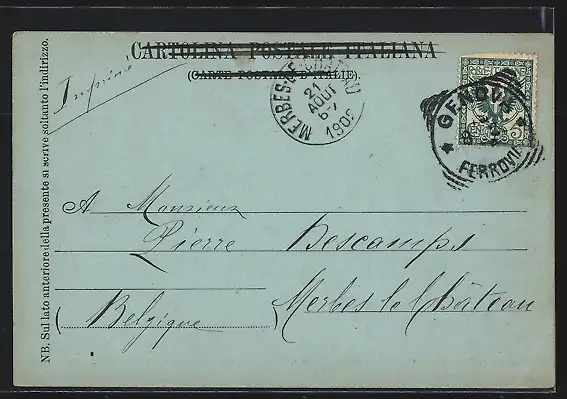 CARTOLINA POSTALE ITALIANA
(CARTE POSTALE D'ITALIE).
NB. Sul lato anteriore della presente si scrive soltanto l'indirizzo.
MERBES-LE-CHATEAU
21
AOUT
1902
GENOVA
FERROVIA
A Monsieur
Pierre Descamps
Merbes le Château
(Belgique